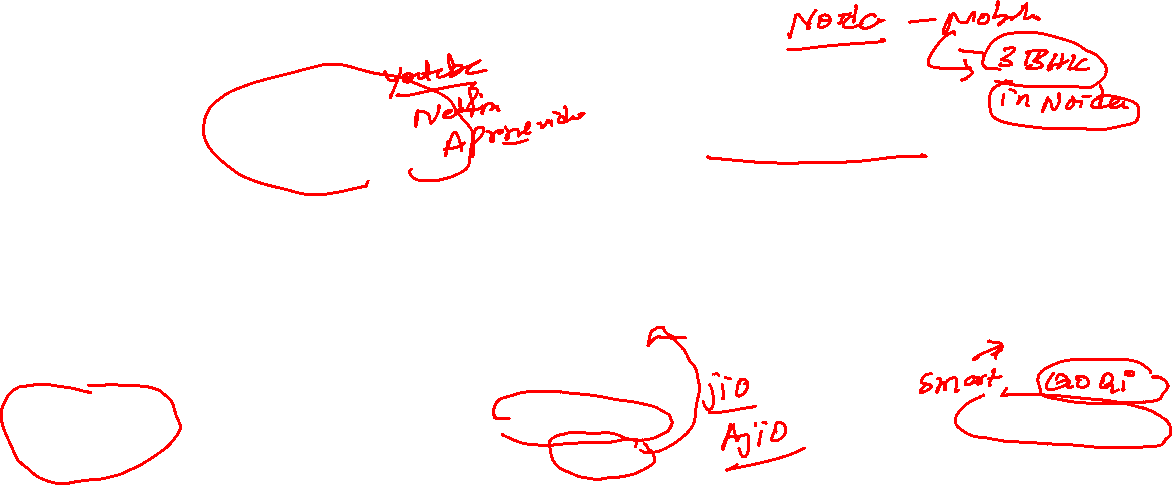 Youtube
Netflix
A Prime video
Noida - Mobile
3 BHK
in Noida
jio
Ajio
Smart